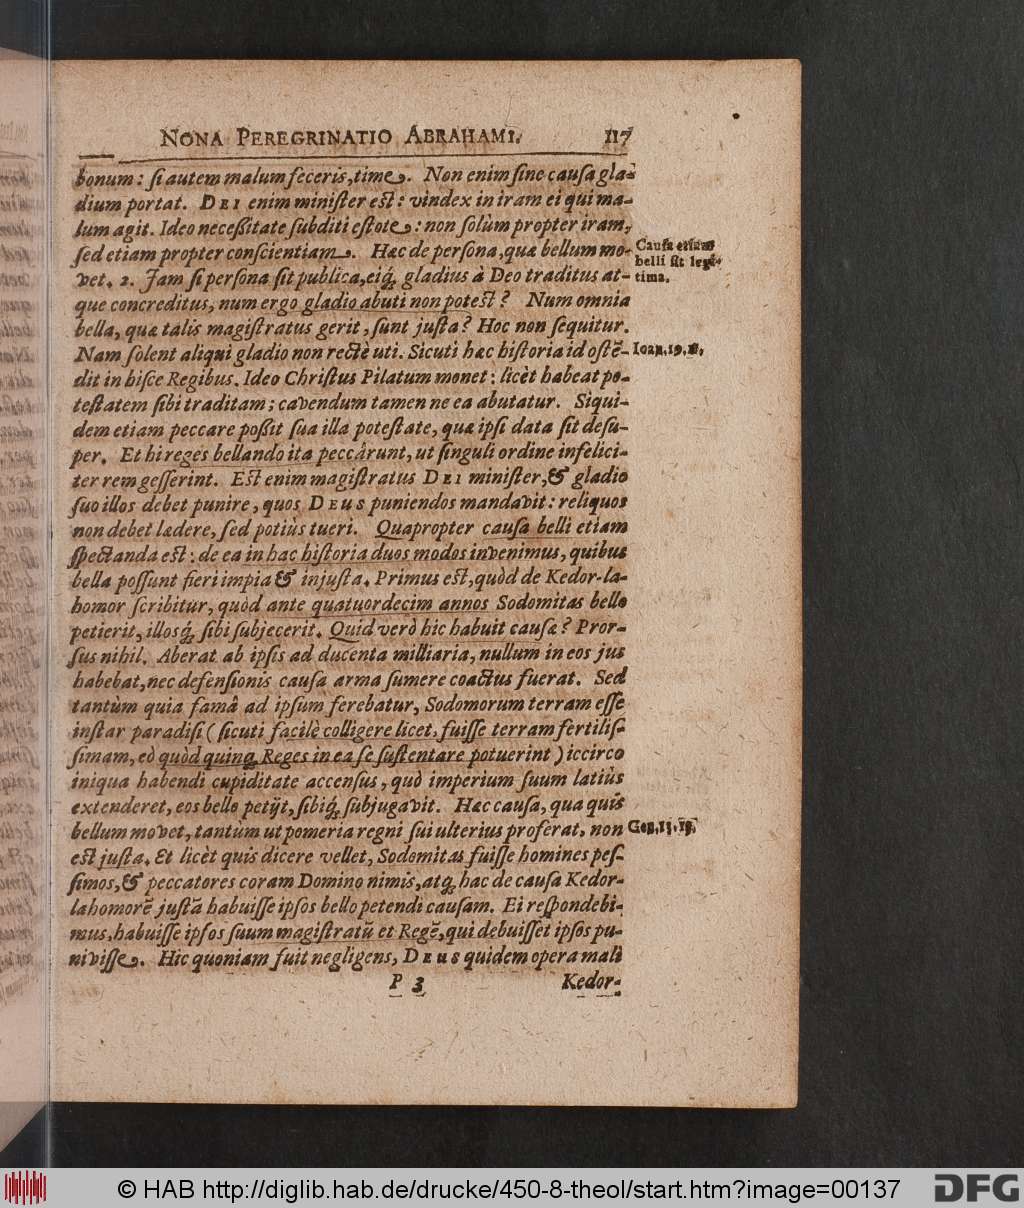 NONA PEREGRINATIO ABRAHAMI. 117
bonum: ſi autem malum feceris, time. Non enim ſine cauſa gla-
dium portat. DEI enim miniſter eſt: vindex in iram ei qui ma-
lum agit. Ideo neceßitate ſubditi eſtote: non ſolùm propter iram,
ſed etiam propter conſcientiam. Hæc de perſona, quæ bellum mo-
vet. 2. Jam ſi perſona ſit publica, eiq́; gladius à Deo traditus at-
que concreditus, num ergo gladio abuti non poteſt? Num omnia
bella, quæ talis magiſtratus gerit, ſunt juſta? Hoc non ſequitur.
Nam ſolent aliqui gladio non rectè uti. Sicuti hæc hiſtoria id oſtē-
dit in hiſce Regibus. Ideo Chriſtus Pilatum monet: licèt habeat po-
teſtatem ſibi traditam; cavendum tamen ne ea abutatur. Siqui-
dem etiam peccare poßit ſua illa poteſtate, quæ ipſi data ſit deſu-
per. Et hi reges bellando ita peccârunt, ut ſinguli ordine infelici-
ter rem geſſerint. Eſt enim magiſtratus DEI miniſter, & gladio
ſuo illos debet punire, quos DEUS puniendos mandavit: reliquos
non debet lædere, ſed potiùs tueri. Quapropter cauſa belli etiam
ſpectanda eſt: de ea in hac hiſtoria duos modos invenimus, quibus
bella poſſunt fieri impia & injuſta. Primus eſt, quòd de Kedor-la-
homor ſcribitur, quòd ante quatuordecim annos Sodomitas bello
petierit, illosq́; ſibi ſubjecerit. Quid verò hic habuit cauſæ? Pror-
ſus nihil. Aberat ab ipſis ad ducenta milliaria, nullum in eos jus
habebat, nec defenſionis cauſa arma ſumere coactus fuerat. Sed
tantùm quia famâ ad ipſum ferebatur, Sodomorum terram eſſe
inſtar paradiſi (ſicuti facilè colligere licet, fuiſſe terram fertiliſ-
ſimam, eò quòd quinq; Reges in ea ſe ſuſtentare potuerint) iccirco
iniqua habendi cupiditate accenſus, quò imperium ſuum latiùs
extenderet, eos bello petijt, ſibiq́; ſubjugavit. Hæc cauſa, qua quis
bellum movet, tantum ut pomeria regni ſui ulterius proferat, non
eſt juſta. Et licèt quis dicere vellet, Sodomitas fuiſſe homines peſ-
ſimos, & peccatores coram Domino nimis, atq; hac de cauſa Kedor-
lahomorē juſtā habuiſſe ipſos bello petendi cauſam. Ei reſpondebi-
mus, habuiſſe ipſos ſuum magiſtratū et Regē, qui debuiſſet ipſos pu-
niviſſe. Hic quoniam fuit negligens, DEUS quidem opera mali
P 3 Kedor-
Cauſa etiam
belli ſit legi-
tima.
Ioan. 19. 11.
Gen. 13. 13.
© HAB http://diglib.hab.de/drucke/450-8-theol/start.htm?image=00137
DFG